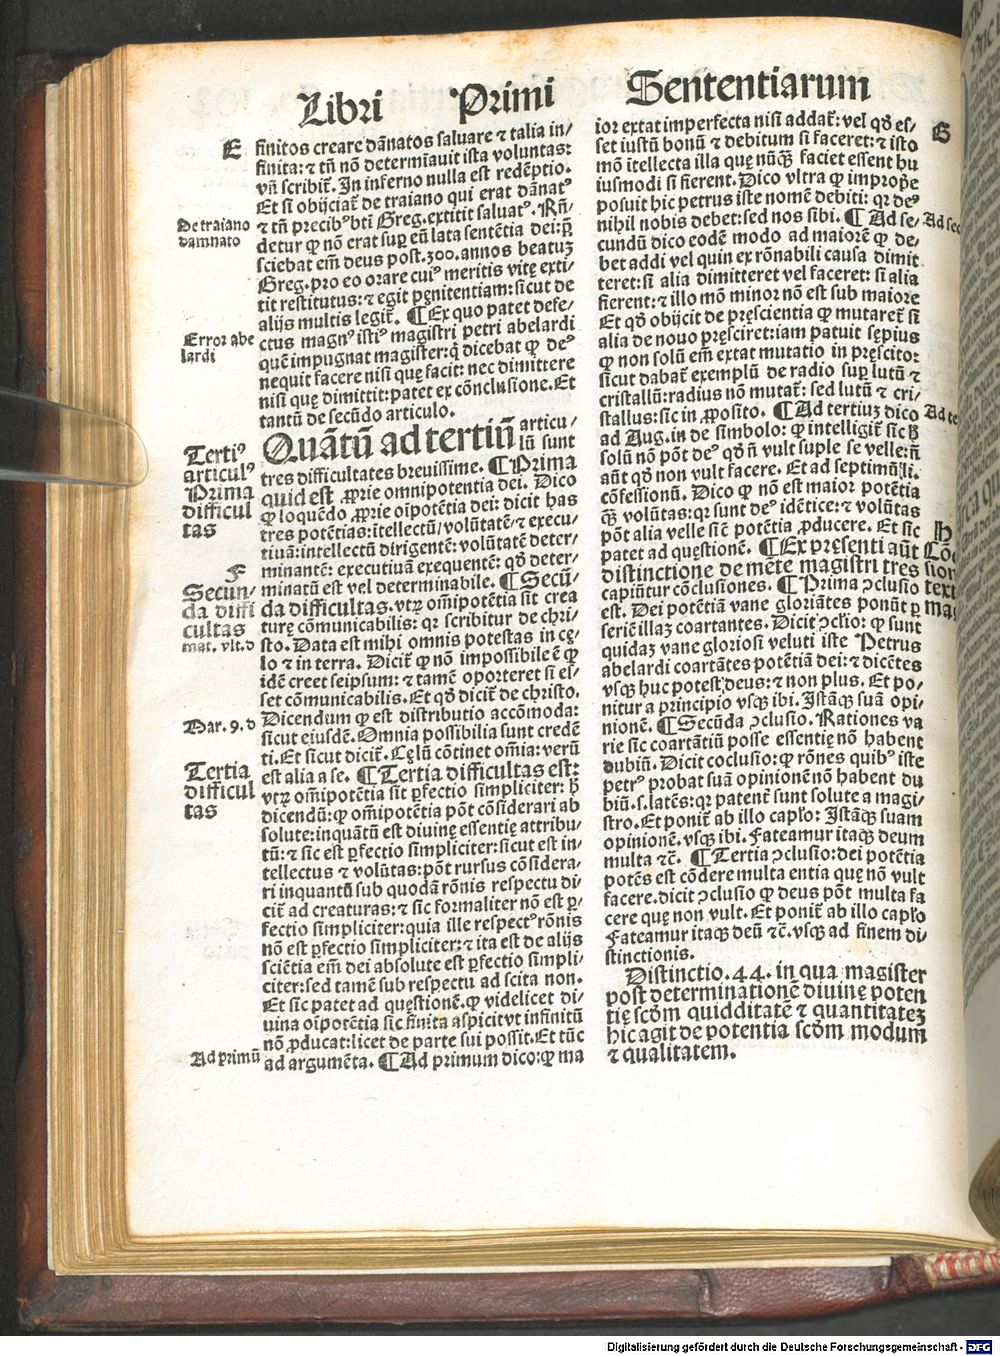 Libri Primi Sententiarum
E
finitos creare dānatos saluare ⁊ talia in/
finita: ⁊ tn̄ nō determīauit ista voluntas:
vn̄ scribit̄. In inferno nulla est redēptio.
Et si obijciat̄ de traiano qui erat dānatꝰ
De traiano
damnato
⁊ tn̄ precibꝰ bti Greg. extitit saluatꝰ. Rn̄/
detur ꝙ nō erat suꝑ eū lata sentētia dei: q̄
sciebat em̄ deus post .300. annos beatuȝ
Greg. pro eo orare cuiꝰ meritis vitę exti/
tit restitutus: ⁊ egit pęnitentiam: sicut de
alijs multis legit̄. ¶ Ex quo patet defe/
Error abe
lardi
ctus magnꝰ istiꝰ magistri petri abelardi
quē impugnat magister: q̄ dicebat ꝙ deꝰ
nequit facere nisi quę facit: nec dimittere
nisi quę dimittit: patet ex cōclusione. Et
tantū de secūdo articulo.
Tertiꝰ
articulꝰ
Prima
difficul
tas
Quātū ad tertiū articu/
lū sunt
tres difficultates breuissime. ¶ Prima
quid est ꝓprie omnipotentia dei. Dico
ꝙ loquēdo ꝓprie oīpotētia dei: dicit has
tres potētias: itellectū/ volūtatē/ ⁊ execu/
tiuā: intellectū dirigentē: volūtatē deter/
minantē: executiuā exequentē: qd̄ deter/
minatū est vel determinabile. ¶ Secū/
F
Secun/
da diffi
cultas
mat. vlt. d
da difficultas. vtꝝ om̄ipotētia sit crea
turę cōmunicabilis: qꝛ scribitur de chri/
sto. Data est mihi omnis potestas in cę/
lo ⁊ in terra. Dicit̄ ꝙ nō impossibile ē ꝙ
idē creet seipsum: ⁊ tamē oporteret si es/
set cōmunicabilis. Et qd̄ dicit̄ de christo.
Mar. 9. d
Dicendum ꝙ est distributio accōmoda:
sicut eiusdē. Omnia possibilia sunt credē
ti. Et sicut dicit̄. Cęlū cōtinet om̄ia: verū
Tertia
difficul
tas
est alia a se. ¶ Tertia difficultas est:
vtꝝ om̄ipotētia sit ꝑfectio simpliciter: h̄
dicendū: ꝙ omīpotētia pōt cōsiderari ab
solute: inquātū est diuinę essentię attribu/
tū: ⁊ sic est ꝑfectio simpliciter: sicut est in/
tellectus ⁊ volūtas: pōt rursus cōsidera/
ri inquantū sub quodā rōnis respectu di/
cit̄ ad creaturas: ⁊ sic formaliter nō est ꝑ/
fectio simpliciter: quia ille respectꝰ rōnis
nō est ꝑfectio simpliciter: ⁊ ita est de alijs
sciētia em̄ dei absolute est ꝑfectio simpli/
citer: sed tamē sub respectu ad scita non.
Et sic patet ad quęstionē. ꝙ videlicet di/
uina oīpotētia sic finita aspicit vt infinitū
nō ꝓducat: licet de parte sui possit. Et tūc
Ad primū
ad argumēta. ¶ Ad primum dico: ꝙ ma
ior extat imperfecta nisi addat̄: vel qd̄ es/
G
set iustū bonū ⁊ debitum si faceret: ⁊ isto
mō itellecta illa quę nūꝙ̄ faciet essent hu
iusmodi si fierent. Dico vltra ꝙ improꝑe
posuit hic petrus iste nomē debiti: qꝛ deꝰ
nihil nobis debet: sed nos sibi. ¶ Ad se/
Ad sec
cundū dico eodē modo ad maiorē ꝙ de/
bet addi vel quin ex rōnabili causa dimit
teret: si alia dimitteret vel faceret: si alia
fierent: ⁊ illo mō minor nō est sub maiore
Et qd̄ obijcit de pręscientia ꝙ mutaret̄ si
alia de nouo pręsciret: iam patuit sępius
ꝙ non solū em̄ extat mutatio in pręscito:
sicut dabat̄ exemplū de radio suꝑ lutū ⁊
cristallū: radius nōn mutat̄: sed lutū ⁊ cri/
stallus: sic in ꝓposito. ¶ Ad tertiuȝ dico
Ad te
ad Aug. in de simbolo: ꝙ intelligit̄ sic h̄
solū nō pōt deꝰ qd̄ n̄ vult suple se velle: n̄
aūt qd̄ non vult facere. Et ad septimū li.
cōfessionū. Dico ꝙ nō est maior potētia
ꝙ̄ volūtas: qꝛ sunt deꝰ idētice: ⁊ volūtas
pōt alia velle sic̄ potētia ꝓducere. Et sic
patet ad quęstionē. ¶ Ex pręsenti aūt
H
Cōc
sion
text
mag
distinctione de mēte magistri tres
capiūtur cōclusiones. ¶ Prima ↄclusio
est. Dei potētiā vane gloriātes ponūt ꝑ
seriē illaȝ coartantes. Dicit ↄclꝰio: ꝙ sunt
quidaȝ vane gloriosi veluti iste Petrus
abelardi coartātes potētiā dei: ⁊ dicētes
vsqȝ huc potest deus: ⁊ non plus. Et po/
nitur a principio vsqȝ ibi. Istāqȝ suā opi/
nionē. ¶ Secūda ↄclusio. Rationes va
rie sic coartātiū posse essentię nō habent
dubiū. Dicit coclusio: ꝙ rōnes quibꝰ iste
petrꝰ probat suā opinionē nō habent du
biū. s. latēs: qꝛ patent̄ sunt solute a magi/
stro. Et ponit̄ ab illo caplo: Istāqȝ suam
opinionē. vsqȝ ibi. Fateamur itaqȝ deum
multa ⁊c̄. ¶ Tertia ↄclusio: dei potētia
potēs est cōdere multa entia quę nō vult
facere. dicit ↄclusio ꝙ deus pōt multa fa
cere quę non vult. Et ponit̄ ab illo caplo
Fateamur itaqȝ deū ⁊c̄. vsqȝ ad finem di/
stinctionis.
Distinctio. 44. in qua magister
post determinationē diuinę poten
tię scd̄m quidditatē ⁊ quantitateȝ
hic agit de potentia scd̄m modum
⁊ qualitatem.
Digitalisierung gefördert durch die Deutsche Forschungsgemeinschaft - DFG